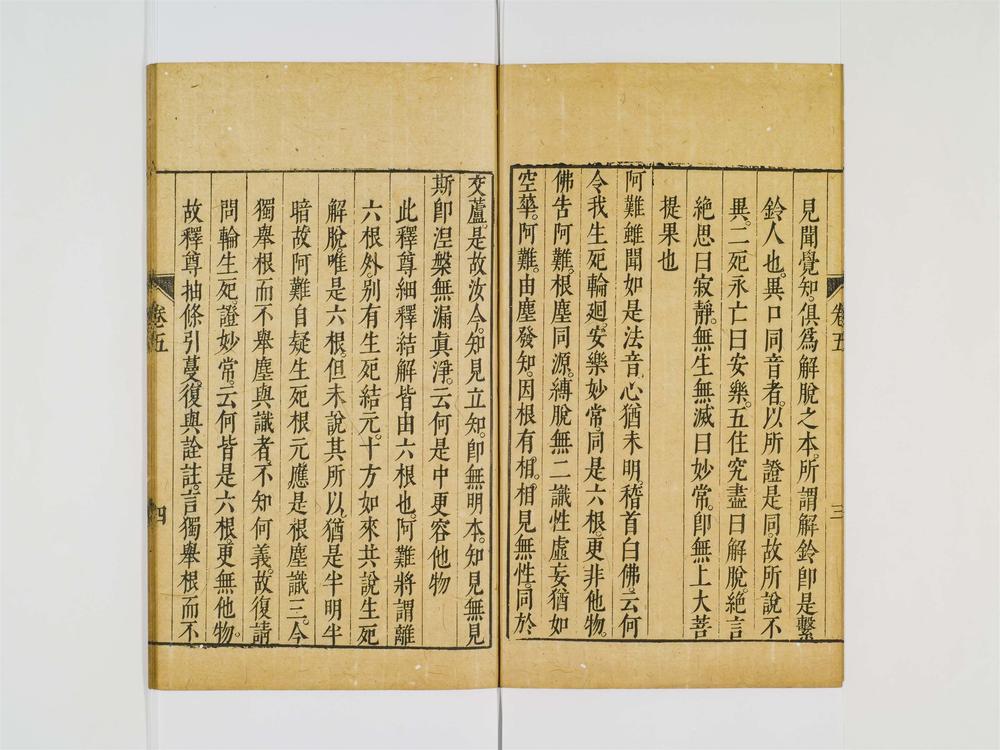 見聞覺知。俱爲解脫之本。所謂解鈴卽是繫
鈴人也。異口同音者。以所證是同。故所說不
異。二死永亡曰安樂。五住究盡曰解脫。絕言
絕思曰寂靜。無生無滅曰妙常。卽無上大菩
提果也
阿難雖聞如是法音。心猶未明。稽首白佛。云何
令我生死輪迴。安樂妙常。同是六根。更非他物。
佛告阿難。根塵同源。縛脫無二。識性虛妄。猶如
空華。阿難。由塵發知。因根有相。相見無性。同於
卷五
三
交蘆。是故汝今。知見立知。卽無明本。知見無見
斯卽涅槃無漏眞淨。云何是中更容他物
此釋尊細釋結解皆由六根也。阿難將謂離
六根外。别有生死結元。十方如來共說生死
解脫。唯是六根。但未說其所以。猶是半明半
暗。故阿難自疑生死根元應是根塵識三。今
獨舉根而不舉塵與識者。不知何義。故復請
問輪生死。證妙常。云何皆是六根。更無他物。
故釋尊抽條引蔓。復與詮註。言獨舉根而不
卷五
四